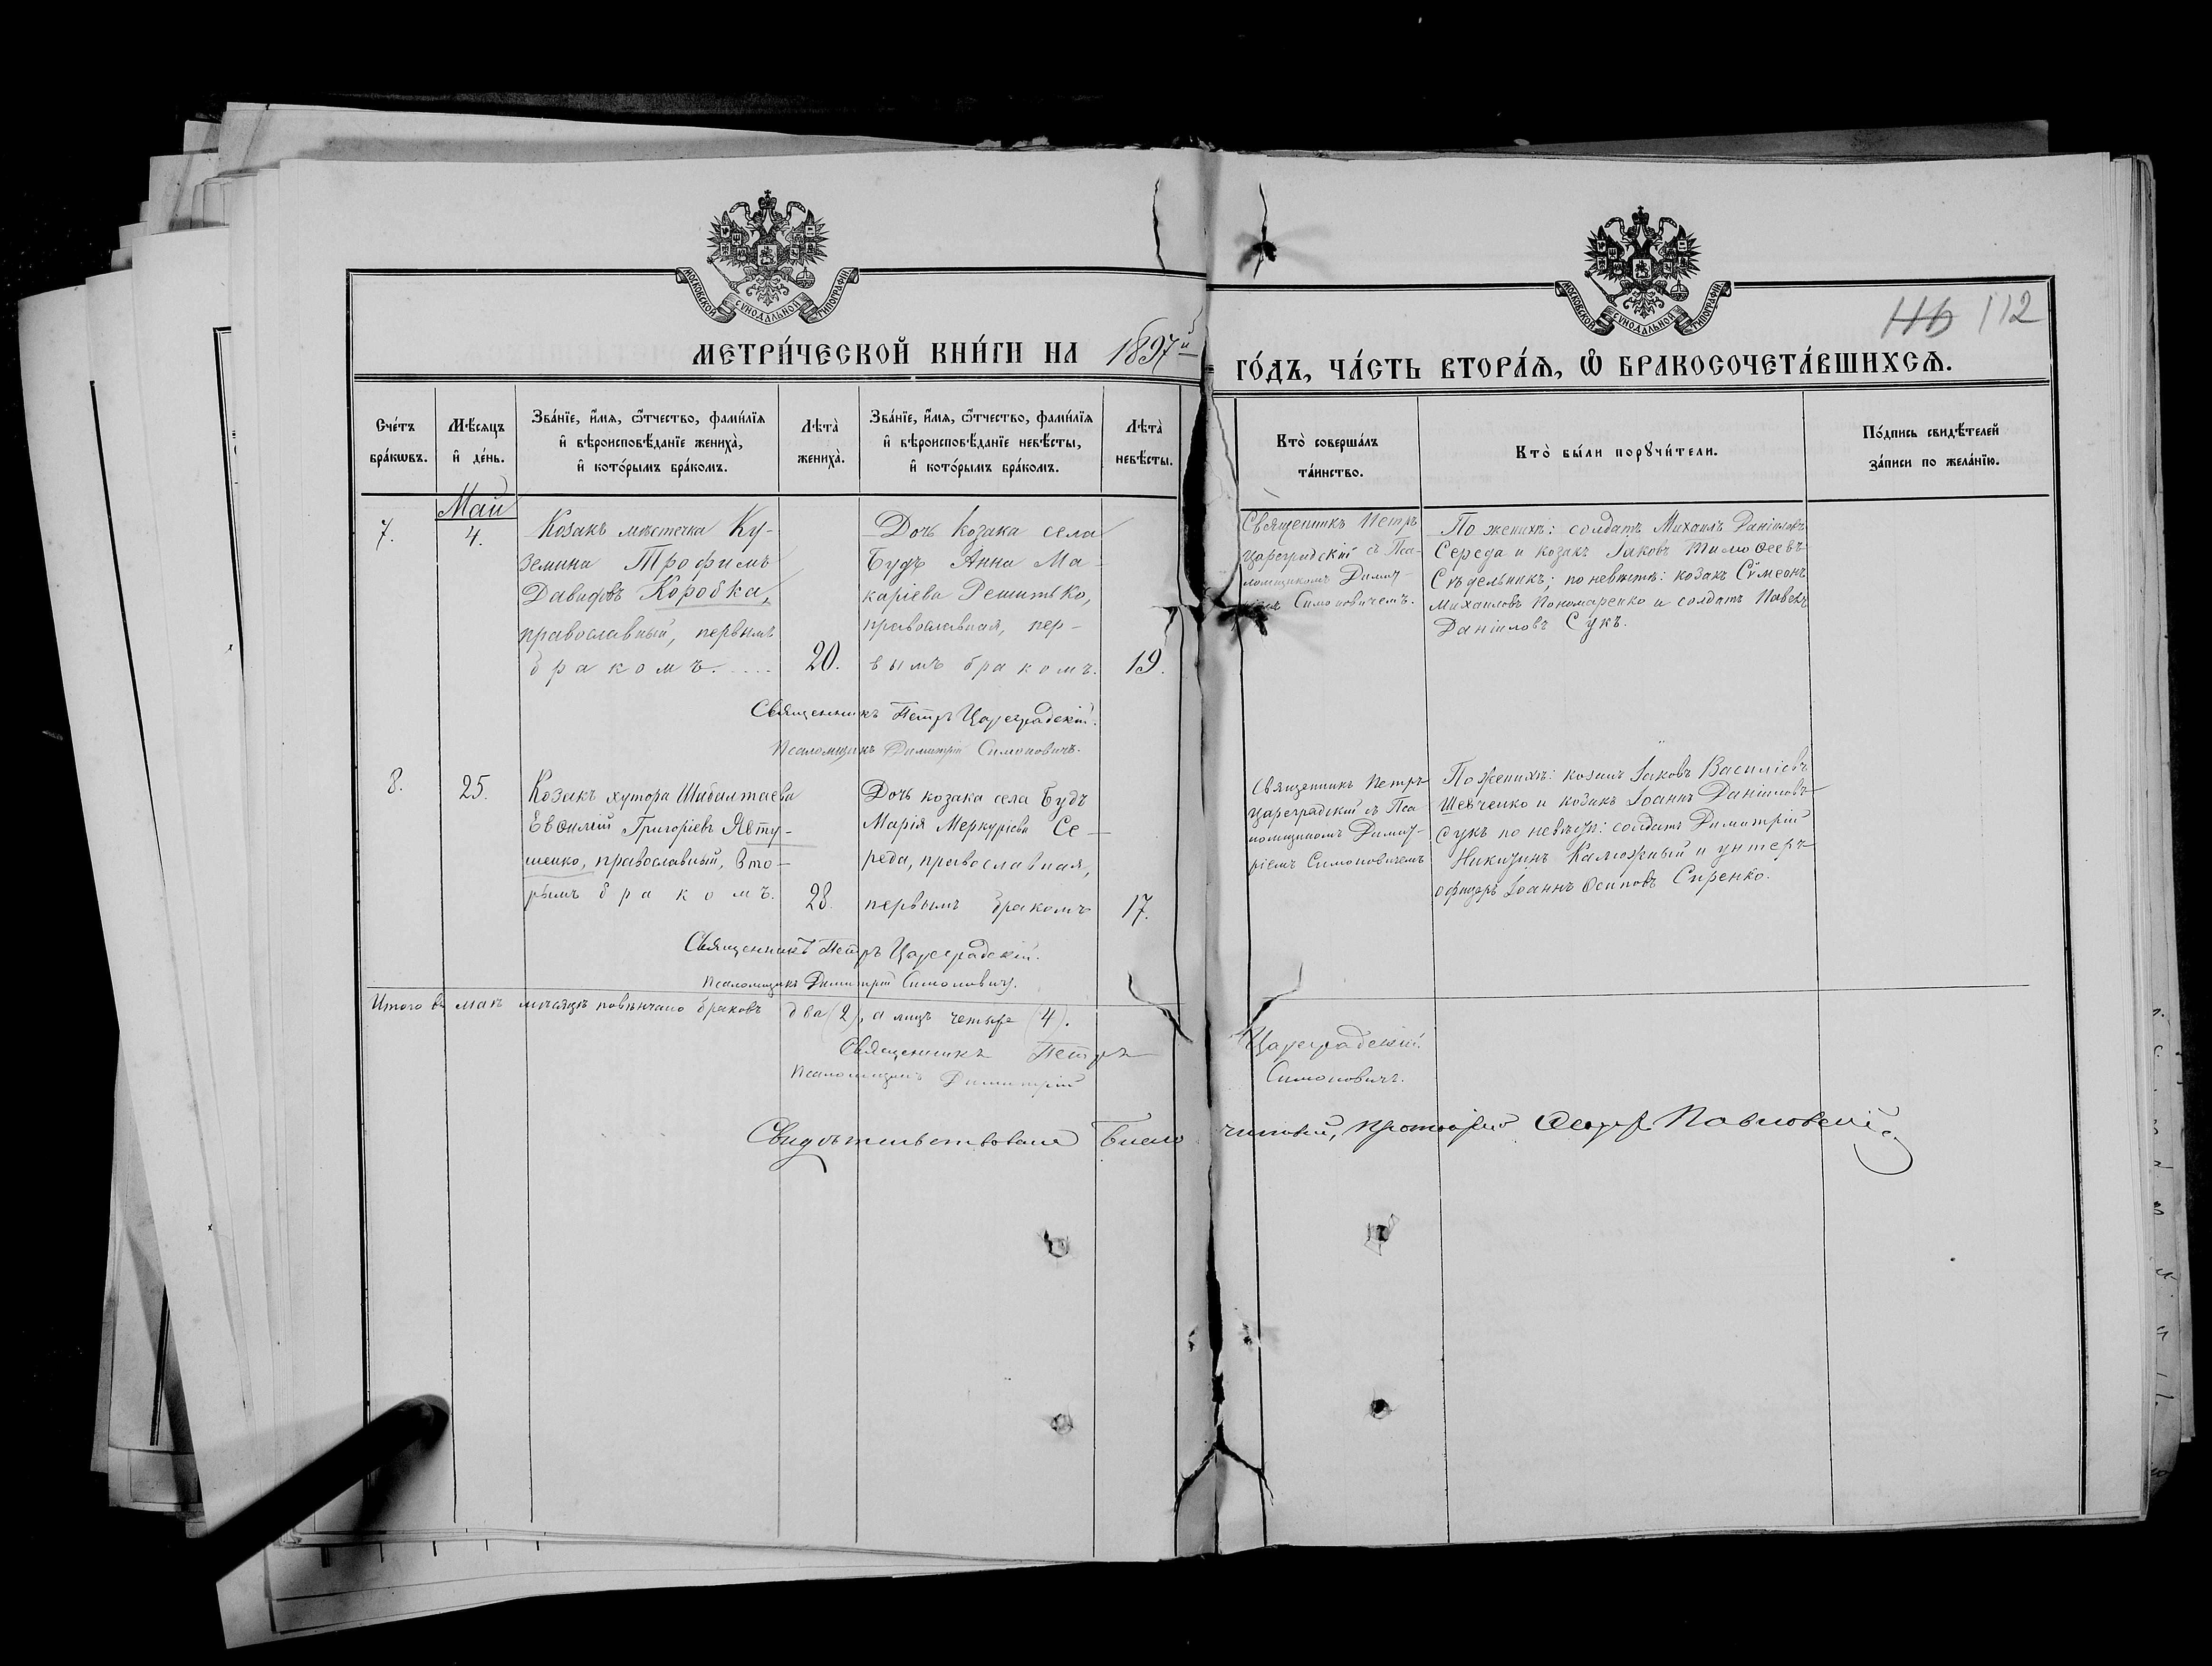 МОСКОВСКОЙ СУНОДАЛЬНОЙ ТИПОГРАФІИ
МОСКОВСКОЙ СУНОДАЛЬНОЙ ТИПОГРАФІИ
116 112
МЕТРИ́ЧЕСКОЙ КНИ́ГИ НА 1897й ГО́ДЪ, ЧА́СТЬ ВТОРА́Ѧ, Ѡ҆ БРАКОСОЧЕТА́ВШИХСѦ.
Сче́тъ бра́кѡвъ.
Мѣ́сѧцъ и҆ де́нь.
Зва́нїе, и҆́мѧ, ѻ҆́тчество, фами́лїѧ
и҆ вѣроисповѣ́данїе жениха̀,
и҆ кото́рымъ бра́комъ.
Лѣта̀ жениха̀.
Зва́нїе, и҆́мѧ, ѻ҆́тчество, фами́лїѧ
и҆ вѣроисповѣ́данїе невѣ́сты,
и҆ кото́рымъ бра́комъ.
Лѣта̀ невѣ́сты.
Кто̀ соверша́лъ
та́инство.
Кто̀ бы́ли порꙋчи́тели.
По́дпись свидѣ́телей
за́писи по жела́нїю.
Май
7.
4.
Козакъ мѣстечка Ку-
земина Трофимъ
Давидовъ Коробка,
православный, первымъ
бракомъ.
20.
Дочь козака села
Будъ Анна Ма-
каріева Решитько,
православная, пер-
вымъ бракомъ.
19.
Священникъ Петръ
Цареградскій съ Пса-
ломщикомъ Дими-
Симоновичемъ.
По женихѣ: солдатъ Михаилъ Даніиловъ
Середа и козакъ Іаковъ Тимоѳеевъ
Сѣдельникъ; по невѣстѣ: козакъ Сѵмеонъ
Михаиловъ Пономаренко и солдатъ Павелъ
Даніиловъ Сукъ.
Священникъ Петръ Цареградскій.
Псаломщикъ Димитрій Симоновичъ.
8.
25.
Козакъ хутора Шабалтаева
Евѳимій Григоріевъ Явту-
шенко, православный, вто-
рымъ бракомъ.
28.
Дочь козака села Будъ
Марія Меркуріева Се-
реда, православная,
первымъ бракомъ
17.
Священникъ Петръ
Цареградскій съ Пса-
ломщикомъ Димит-
ріемъ Симоновичемъ
По женихѣ: козакъ Іаковъ Василіевъ
Шевченко и козакъ Іоаннъ Даніиловъ
Сукъ по невѣстѣ: солдатъ Димитрій
Калюжный и унтеръ
офицеръ Іоаннъ Осиповъ Сиренко.
Священникъ Петръ Цареградскій.
Псаломщикъ Димитрій Симоновичъ.
Итого въ маѣ мѣсяцѣ повѣнчано браковъ два (2), а лицъ четыре (4).
Священникъ Петръ Цареградскій.
Псаломщикъ Димитрій Симоновичъ.
Свидѣтельствовалъ Благочинный, Протоіерей Павловскій